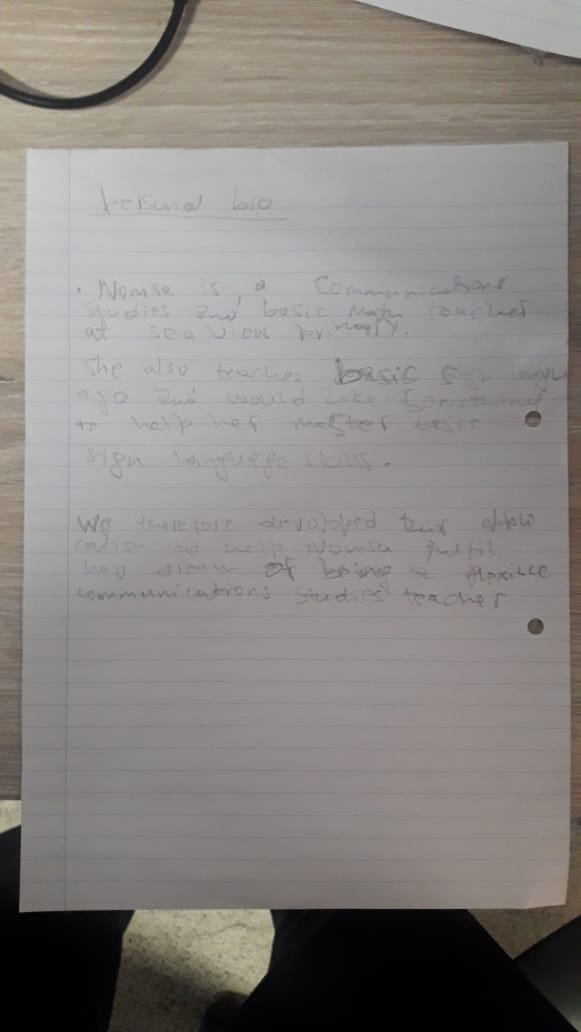 Personal bio
. Nomsa is a Communications
studies and basic math teacher
at sea view primary.
She also teaches basic sign
ago and would like something
to help her master basic
sign language skills.
We therefore devoloped this appli
cation to help Nomsa fulfil
her dream of being a flexible
communications studies teacher